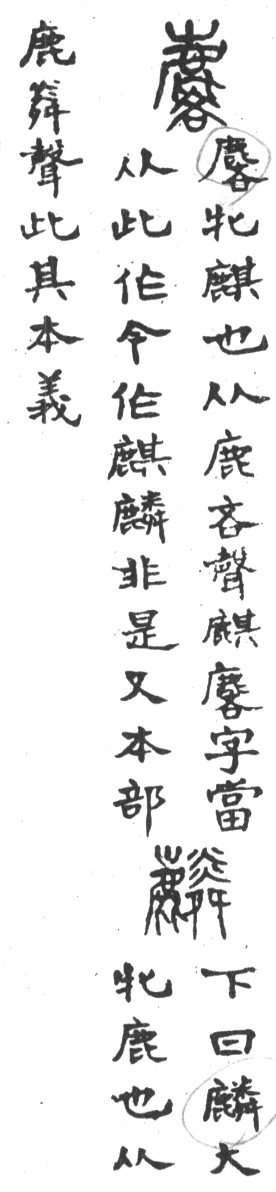 麐
麐牝麒也从鹿吝聲麒麐字當
从此作今作麒麟非是又本部
麟
下曰麟大
牝鹿也从
鹿粦聲此其本義